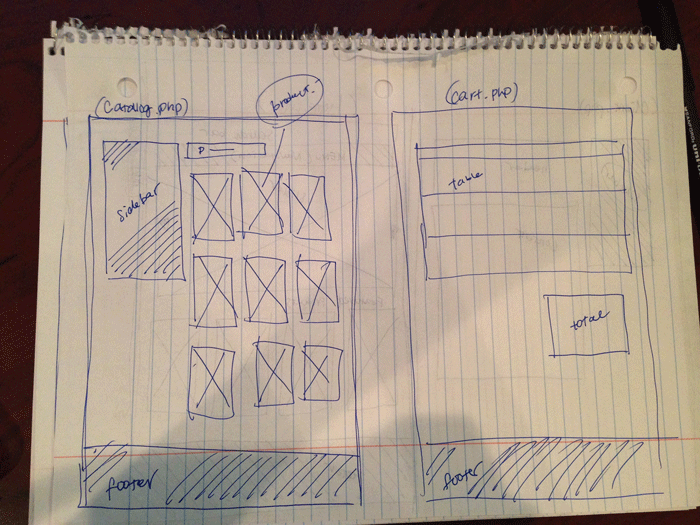 (Catalog.php)
product.
P
sidebar
footer
(cart.php)
table
total
footer